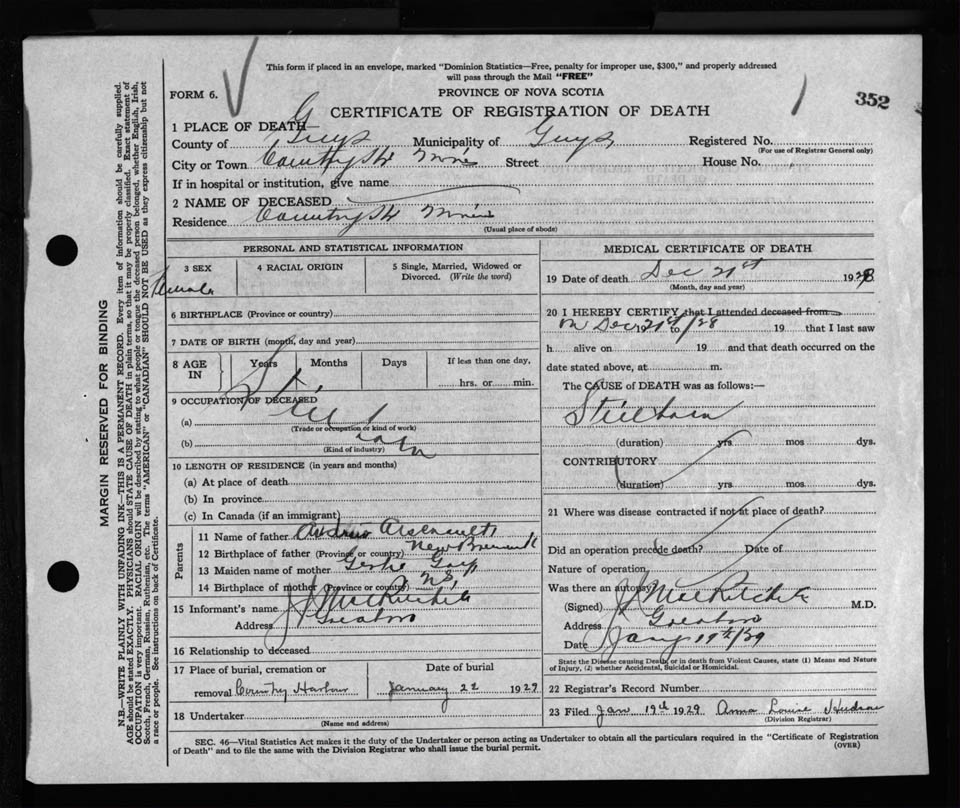 This form if placed in an envelope, marked "Dominion Statistics—Free, penalty for improper use, $300," and properly addressed
will pass through the Mail "FREE"
PROVINCE OF NOVA SCOTIA
FORM 6.
CERTIFICATE OF REGISTRATION OF DEATH
352
1 PLACE OF DEATH
County of Guys Municipality of Guys Registered No.
(For use of Registrar General only)
City or Town Street House No.
If in hospital or institution, give name
2 NAME OF DECEASED
Residence
(Usual place of abode)
PERSONAL AND STATISTICAL INFORMATION
3 SEX
Female
4 RACIAL ORIGIN
5 Single, Married, Widowed or
Divorced. (Write the word)
6 BIRTHPLACE (Province or country)
7 DATE OF BIRTH (month, day and year)
8 AGE
IN
Years Months Days
If less than one day,
hrs. or min.
9 OCCUPATION OF DECEASED
Still
(a)
(Trade or occupation or kind of work)
born
(b)
(Kind of industry)
10 LENGTH OF RESIDENCE (in years and months)
(a) At place of death
(b) In province
(c) In Canada (if an immigrant)
Parents
11 Name of father Arsenault
12 Birthplace of father (Province or country) New Brunswick
13 Maiden name of mother
14 Birthplace of mother (Province or country) N.S.
15 Informant's name J MacRitchie
Address
16 Relationship to deceased
17 Place of burial, cremation or
removal Country Harbour
Date of burial
January 22 1929
18 Undertaker
(Name and address)
MEDICAL CERTIFICATE OF DEATH
19 Date of death Dec 21st 1928
(Month, day and year)
20 I HEREBY CERTIFY that I attended deceased from
on Dec 21st/28 to 19 that I last saw
h alive on 19 and that death occurred on the
date stated above, at m.
The CAUSE of DEATH was as follows:—
Stillborn
(duration) yrs mos dys.
CONTRIBUTORY
(duration) yrs mos. dys.
21 Where was disease contracted if not at place of death?
Did an operation precede death? Date of
Nature of operation
Was there an autopsy
(Signed) J MacRitchie M.D.
Address
Date Jany 19th/29
State the Disease causing Death, or in death from Violent Causes, state (1) Means and Nature
of Injury, (2) whether Accidental, Suicidal or Homicidal.
22 Registrar's Record Number
23 Filed Jan 19th 1929 Anna Louise Hudson
(Division Registrar)
SEC. 46—Vital Statistics Act makes it the duty of the Undertaker or person acting as Undertaker to obtain all the particulars required in the "Certificate of Registration
of Death" and to file the same with the Division Registrar who shall issue the burial permit.
(OVER)
MARGIN RESERVED FOR BINDING
N.B.—WRITE PLAINLY WITH UNFADING INK—THIS IS A PERMANENT RECORD. Every item of information should be carefully supplied.
AGE should be stated EXACTLY. PHYSICIANS should STATE CAUSE OF DEATH in plain terms, so that it may be properly classified. Exact statement of
OCCUPATION is very important. RACIAL ORIGIN will be described by stating to what people or tongue the deceased person belonged, whether English, Irish,
Scotch, French, German, Russian, Ruthenian, etc. The terms "AMERICAN" or "CANADIAN" SHOULD NOT BE USED as they express citizenship but not
a race or people. See instructions on back of Certificate.